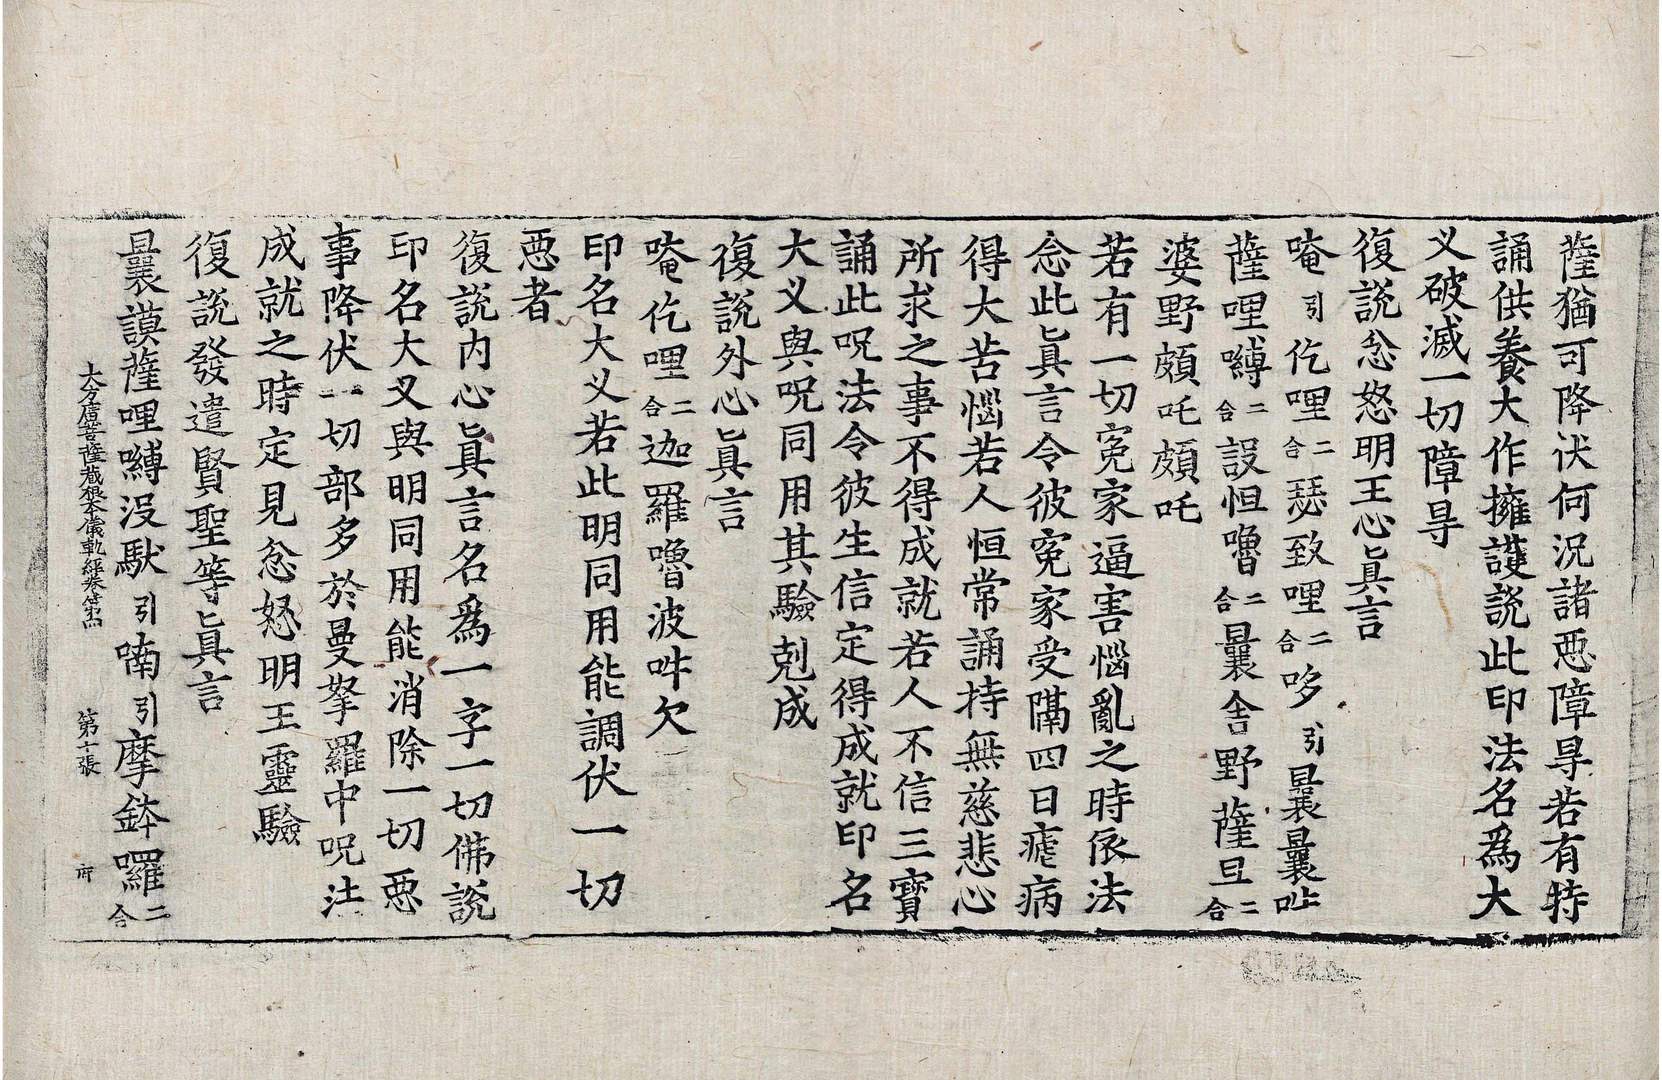 薩猶可降伏何況諸惡障㝵若有特
誦供養大作擁護説此印法名爲大
义破滅一切障㝵
復説忿怒明王心眞言
唵引仡哩二合瑟致哩二合哆引曩曩吡
薩哩嚩二合設怛嚕二合曩舍野薩旦二合
婆野頗吒頗吒
若有一切寃家逼害惱亂之時依法
念此眞言令彼寃家受隔四日瘧病
得大苦惱若人恒常誦持無慈悲心
所求之事不得成就若人不信三寶
誦此呪法令彼生信定得成就印名
大义與呪同用其驗剋成
復説外心眞言
唵仡哩二合迦羅嚕波吽欠
印名大义若此明同用能調伏一切
惡者
復説内心眞言名爲一字一切佛説
印名大义與明同用能消除一切惡
事降伏一切部多於曼拏羅中呪法
成就之時定見忿怒明王靈驗
復説發遣賢聖等眞言
曩謨薩哩嚩没馱引喃引摩鉢囉二合
大方廣菩薩藏根本儀軌經卷第四 第十張 府